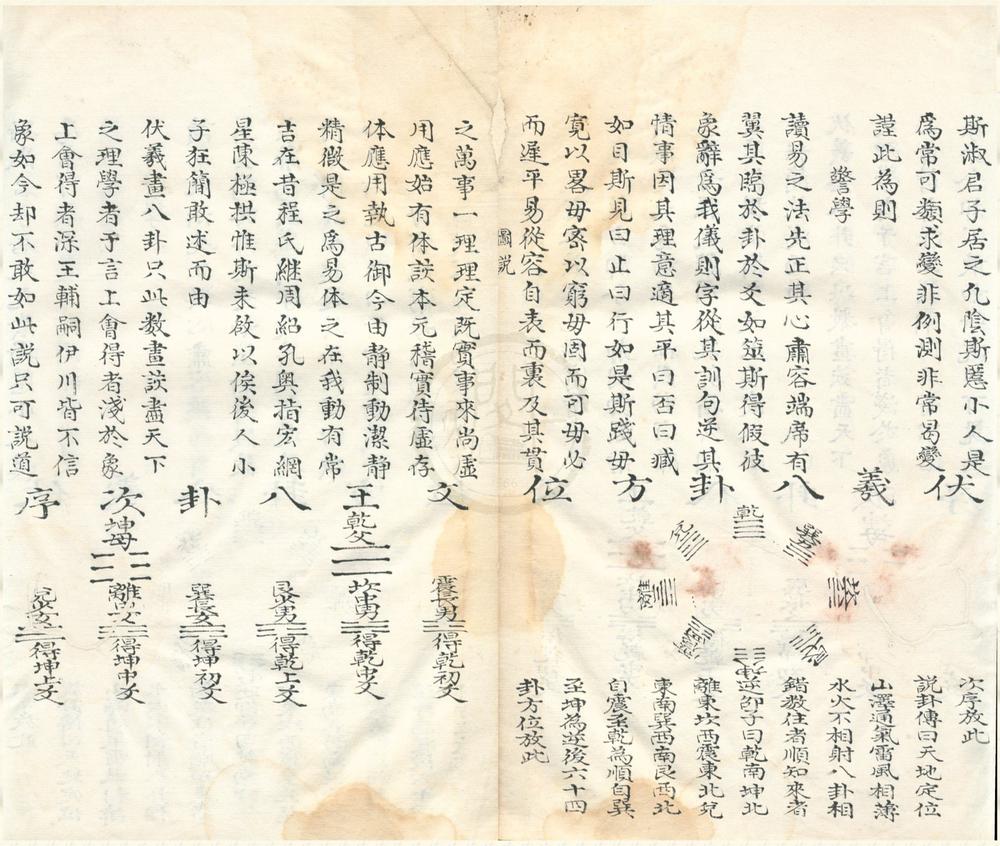 斯淑君子居之凢陰斯慝小人是
爲常可類求變非例測非常曷變
謹此為則
警學
讀易之法先正其心肅容端席有
翼其臨於卦於爻如筮斯得假彼
象辭爲我儀則字從其訓句逆其
情事因其理意適其平曰否曰臧
如目斯見曰止曰行如是斯踐毋
寛以畧毋宻以窮毋固而可毋必
而遅平易從容自表而裏及其貫
圖説
之萬事一理理定既實事來尚虚
用應始有体該本元稽實待虚存
体應用執古御今由静制動潔静
精微是之爲易体之在我動有常
吉在昔程氏継周紹孔奥指宏綱
星陳極拱惟斯未啟以俟後人小
子狂簡敢述而由
伏羲畫八卦只此数畫該盡天下
之理學者于言上會得者淺於象
上會得者深王輔嗣伊川皆不信
象如今却不敢如此説只可説道
伏羲八卦方位
乾
兌
離
震
坤
艮
坎
巽
次序放此
説卦傳曰天地定位
山澤通氣雷風相薄
水火不相射八卦相
錯数往者順知來者
逆邵子曰乾南坤北
離東坎西震東北兌
東南巽西南艮西北
自震至乾為順自巽
至坤為逆後六十四
卦方位放此
文王八卦次序
乾父
坤母
震長男
得乾初爻
坎中男
得乾中爻
艮少男
得乾上爻
巽長女
得坤初爻
離中女
得坤中爻
兌少女
得坤上爻